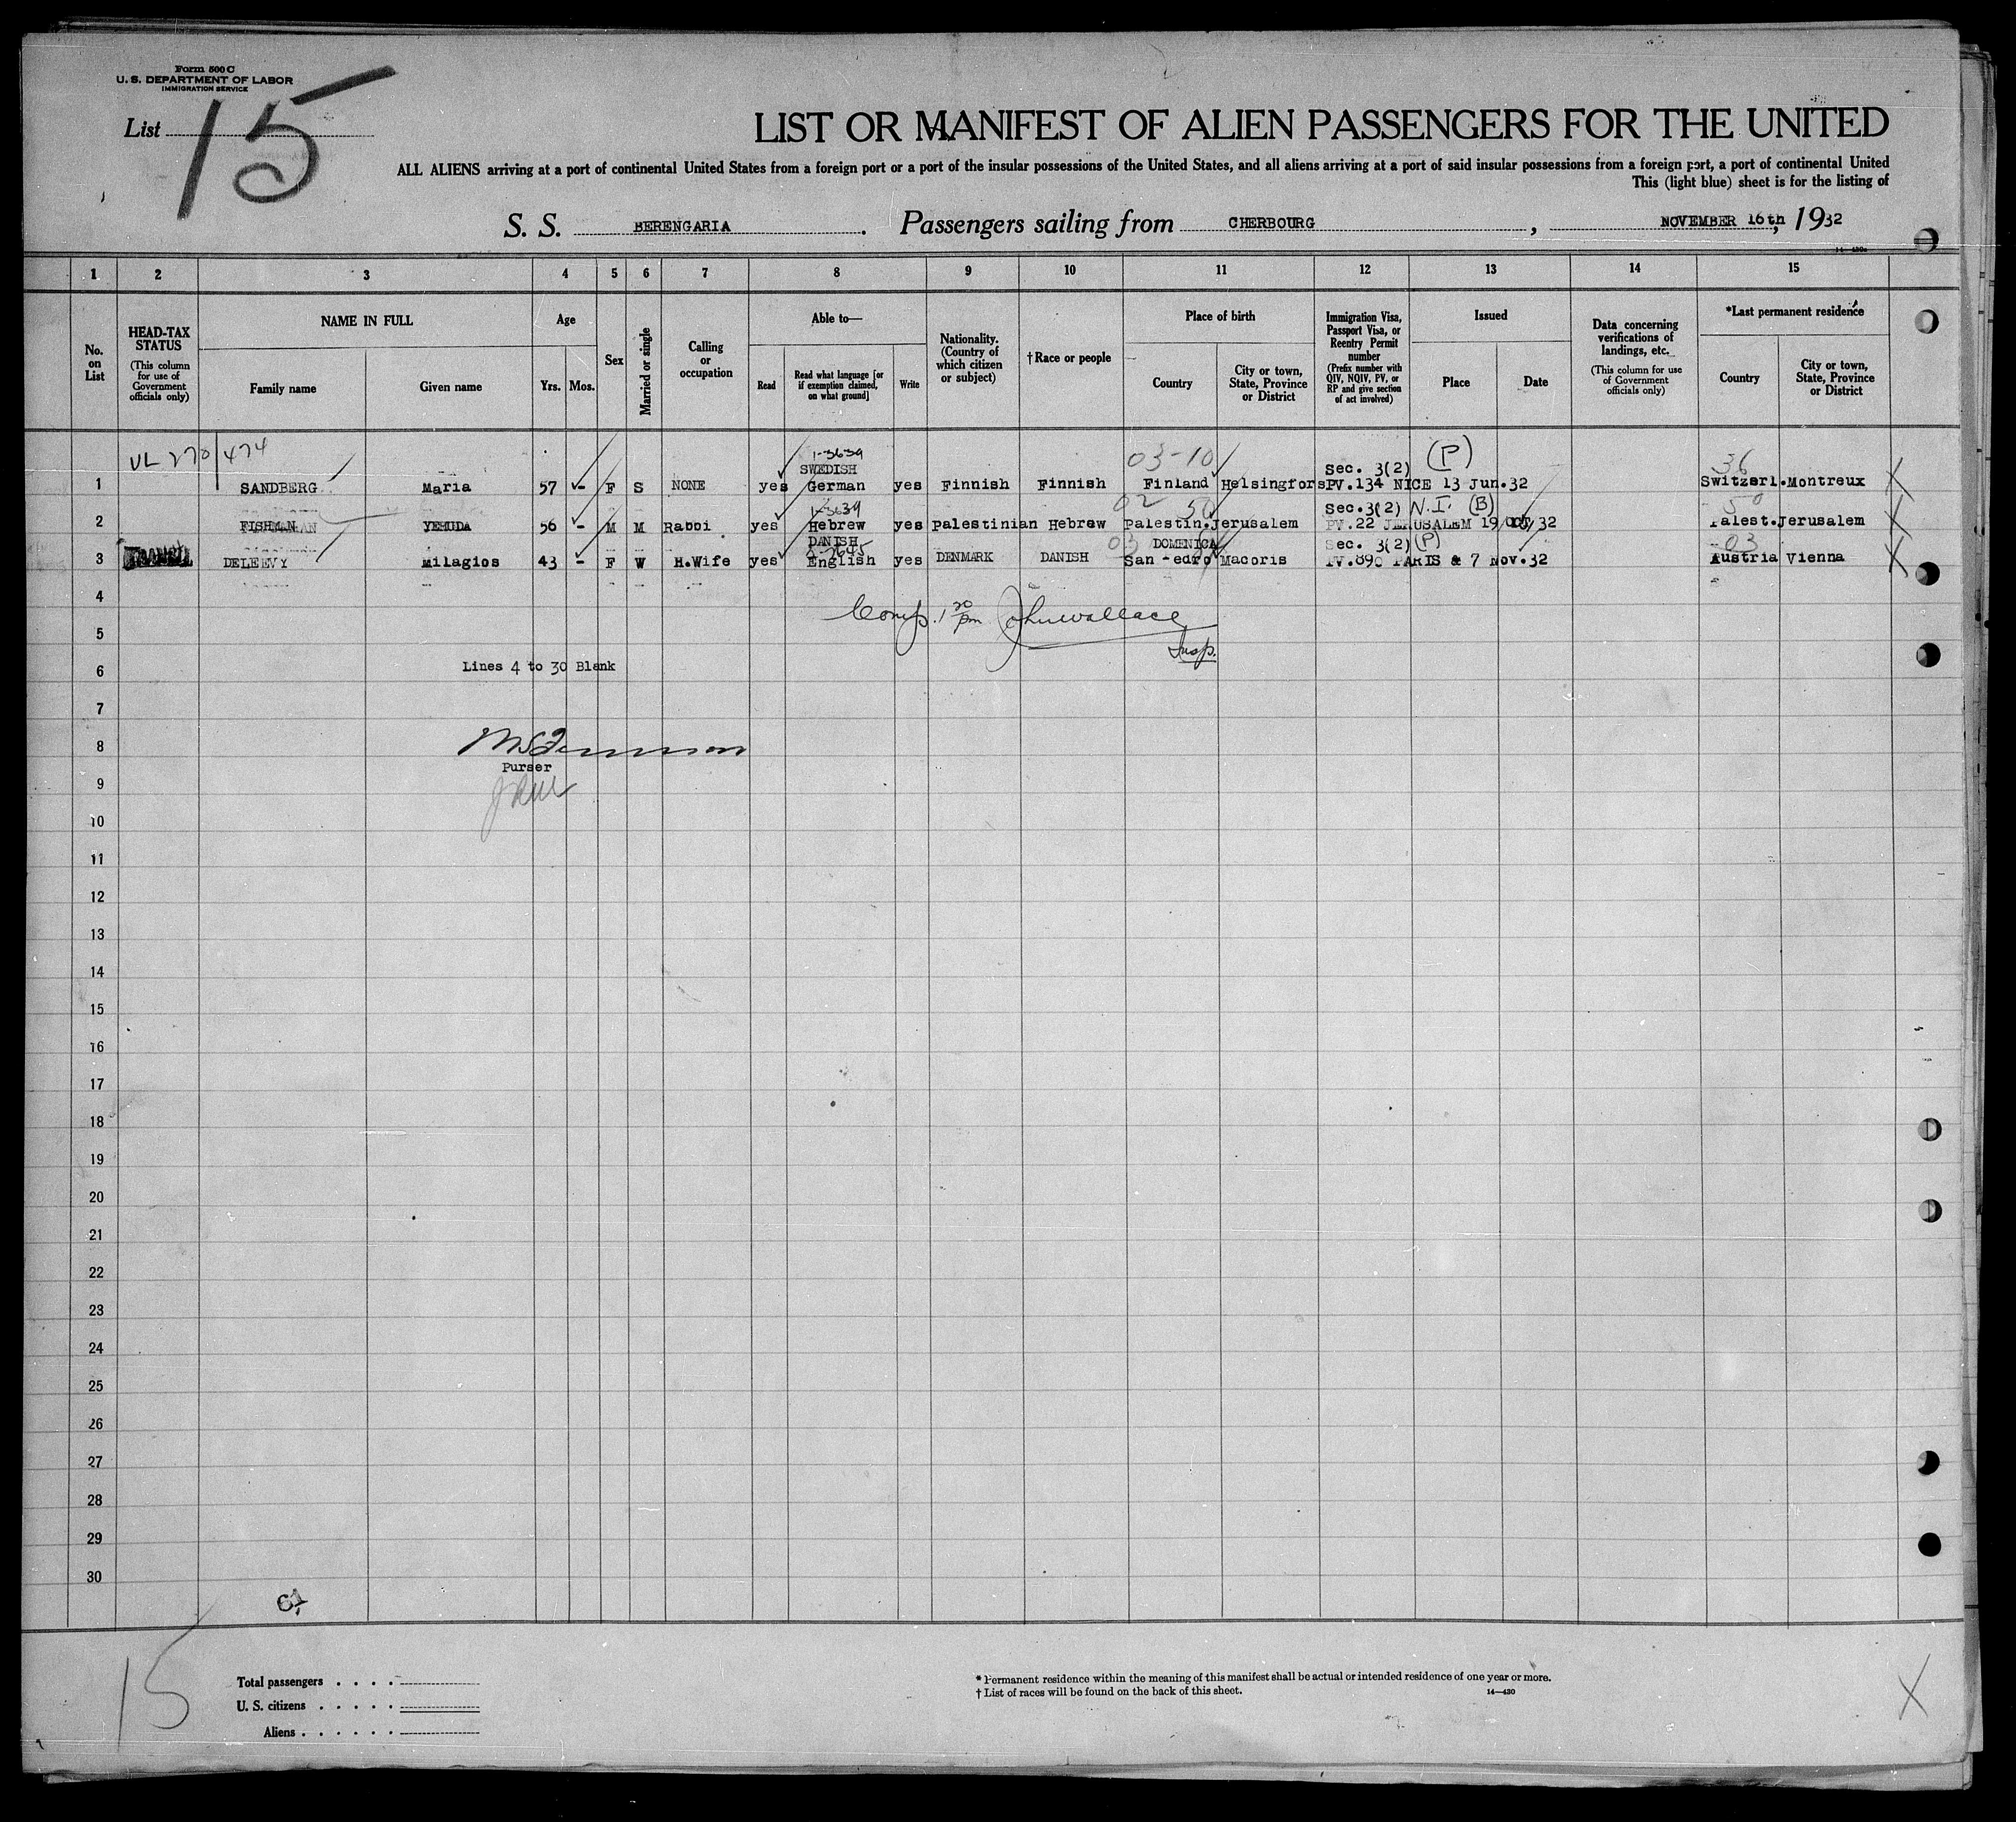 Form 500 C
U. S. DEPARTMENT OF LABOR
IMMIGRATION SERVICE
List 15
LIST OR MANIFEST OF ALIEN PASSENGERS FOR THE UNITED
ALL ALIENS arriving at a port of continental United States from a foreign port or a port of the insular possessions of the United States, and all aliens arriving at a port of said insular possessions from a foreign port, a port of continental United
This (light blue) sheet is for the listing of
S. S. BERENGARIA. Passengers sailing from CHERBOURG, NOVEMBER 16th, 1932
14—430a
1 2 3 4 5 6 7 8 9 10 11 12 13 14 15
No. on List
HEAD-TAX STATUS
(This column for use of Government officials only)
NAME IN FULL
Family name
Given name
Age
Yrs.
Mos.
Sex
Married or single
Calling or occupation
Able to—
Read
Read what language [or if exemption claimed, on what ground]
Write
Nationality. (Country of which citizen or subject)
†Race or people
Place of birth
Country
City or town, State, Province or District
Immigration Visa, Passport Visa, or Reentry Permit number
(Prefix number with QIV, NQIV, PV, or RP and give section of act involved)
Issued
Place
Date
Data concerning verifications of landings, etc.
(This column for use of Government officials only)
*Last permanent residence
Country
City or town, State, Province or District
VL 270/474 1-3639 03-10 (P) 36
SWEDISH Sec. 3(2)
1 SANDBERG Maria 57 - F S NONE yes German yes Finnish Finnish Finland Helsingfors PV.134 NICE 13 Jun.32 Switzerl. Montreux
1-3639 02 50 Sec.3(2) N.I. (B) 50
2 FISHMAN YEHUDA 56 - M M Rabbi yes Hebrew yes Palestinian Hebrew Palestin. Jerusalem PV.22 JERUSALEM 19 Oct 32 Palest. Jerusalem
DANISH 03 DOMENICA Sec. 3(2) (P) 03
3 DELEEVY Milagios 43 - F W H.Wife yes English yes DENMARK DANISH San -edro Macoris PV.890 PARIS & 7 Nov.32 Austria Vienna
4
Comp. 1 20 pm John Wallace
5
Insp.
6 Lines 4 to 30 Blank
7
8
Purser
9
10
11
12
13
14
15
16
17
18
19
20
21
22
23
24
25
26
27
28
29
30
15
Total passengers
U. S. citizens
Aliens
* Permanent residence within the meaning of this manifest shall be actual or intended residence of one year or more.
† List of races will be found on the back of this sheet.
14—430
X